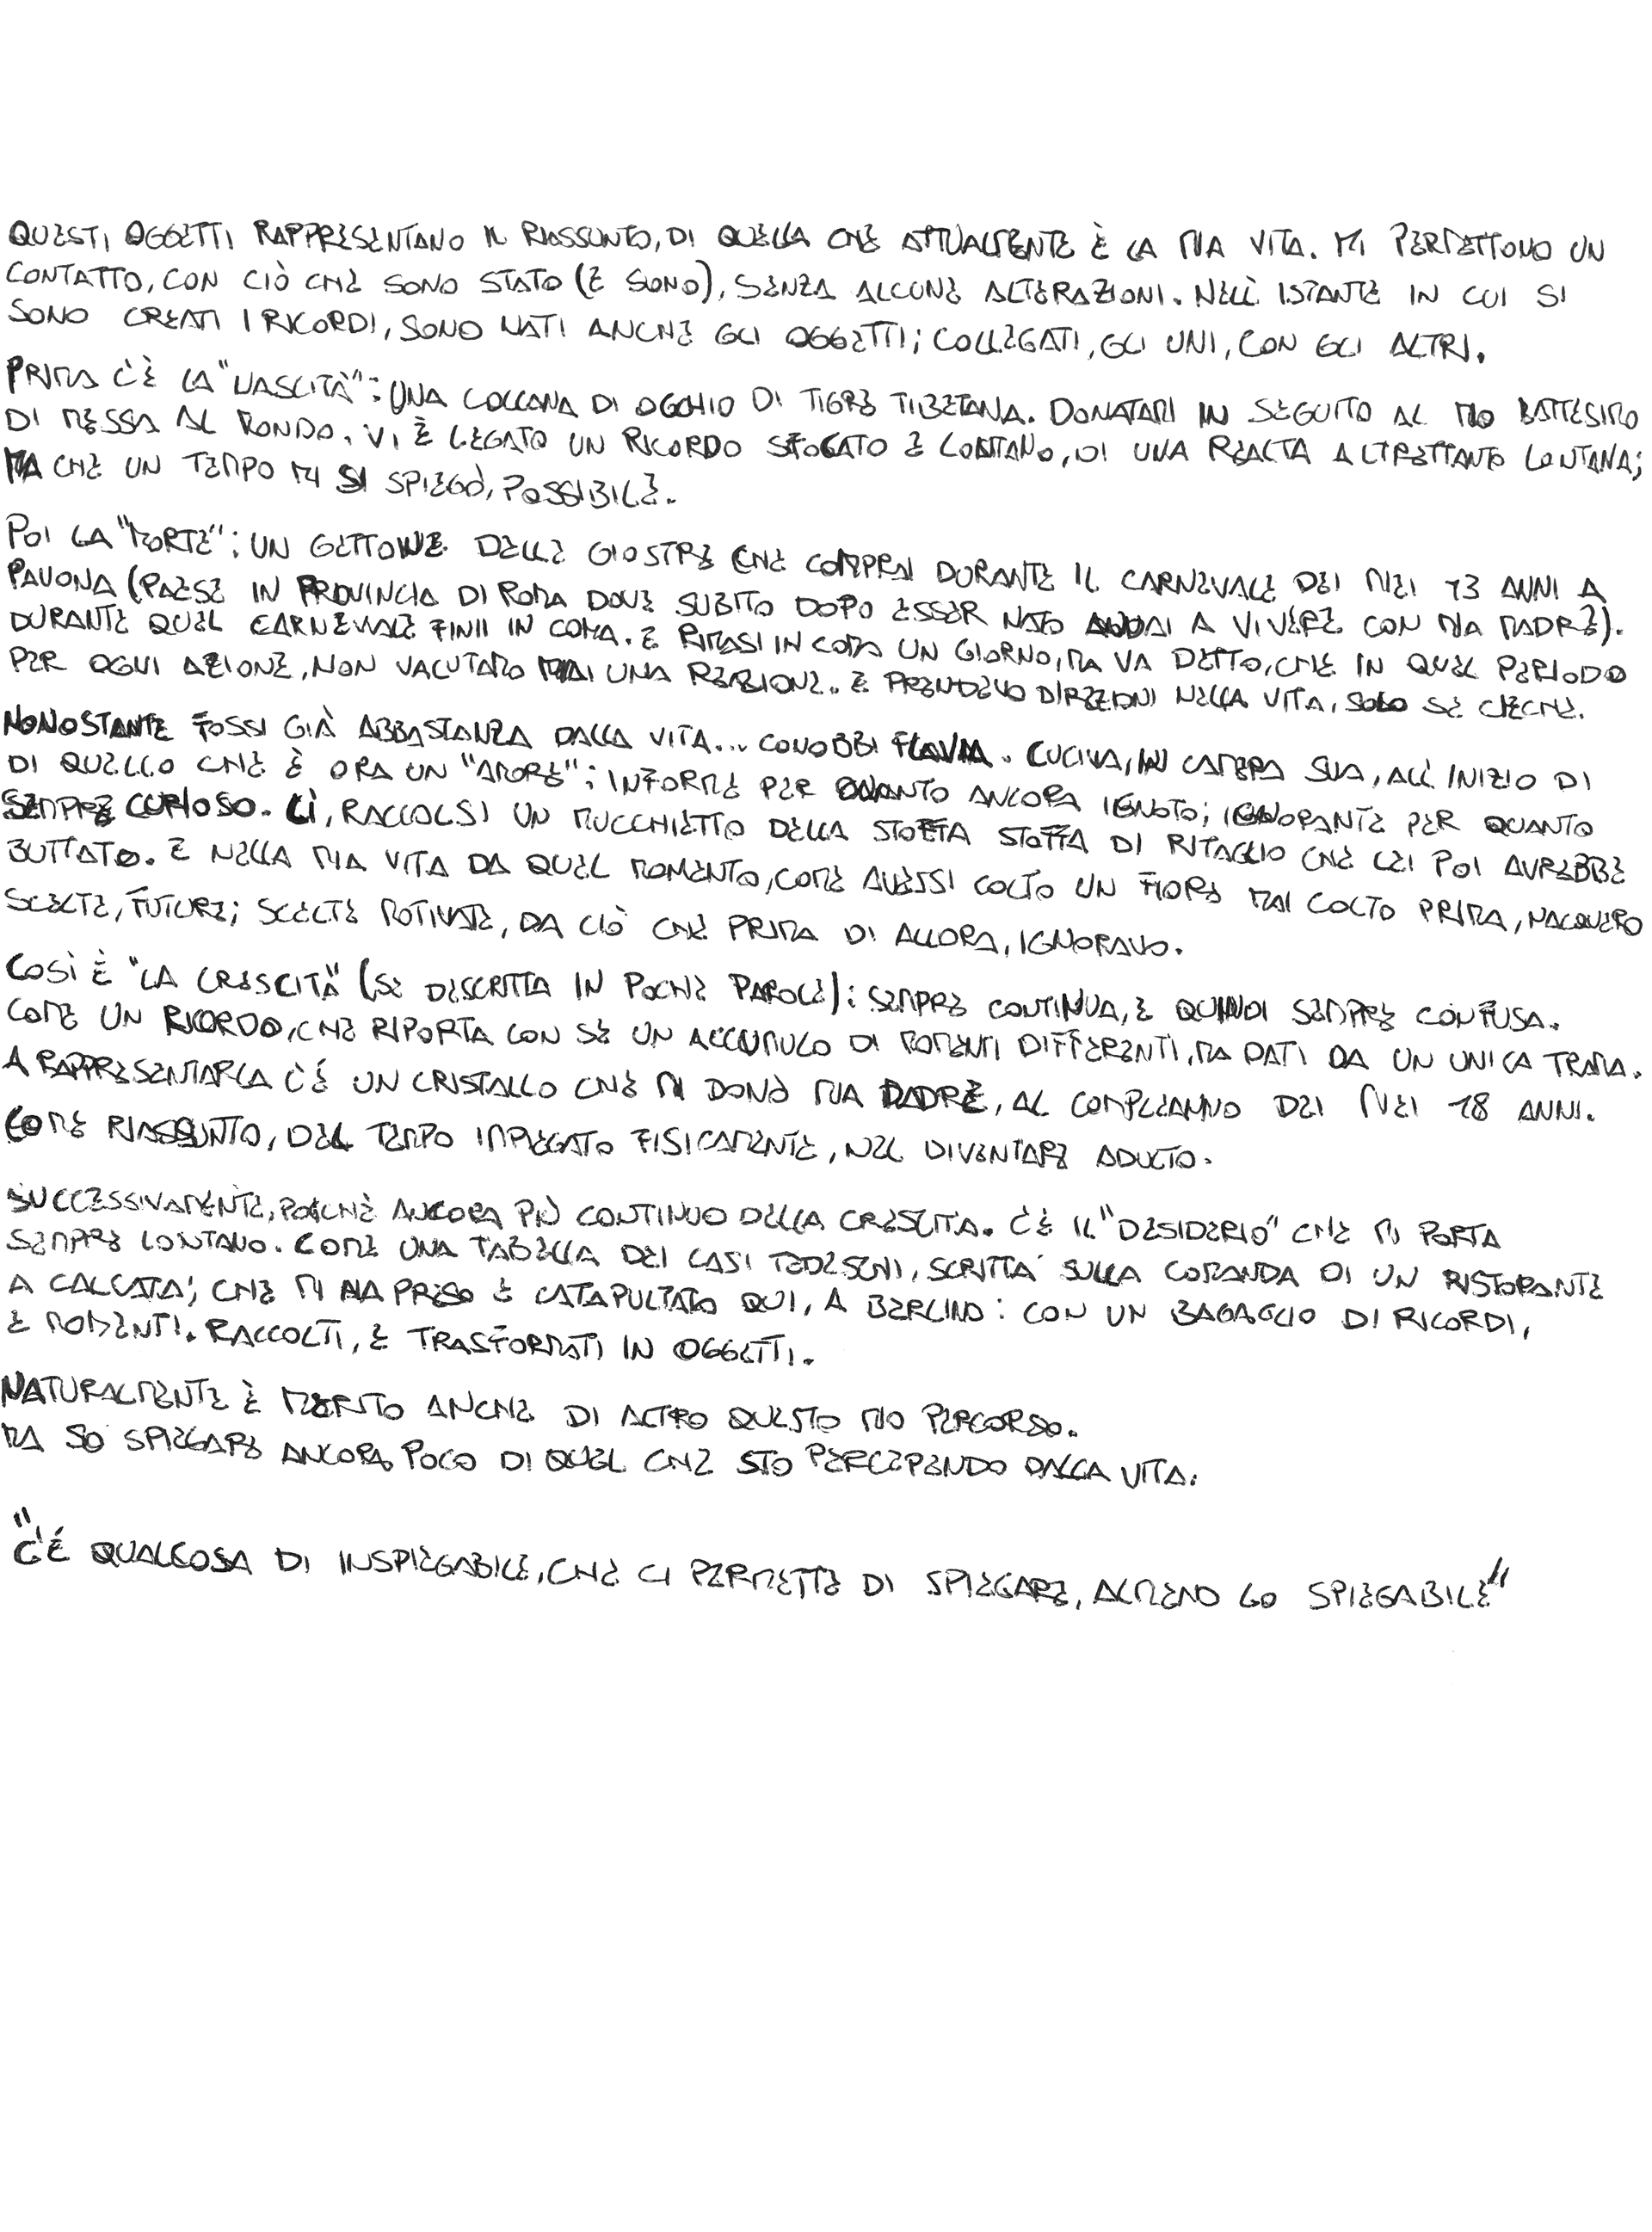 QUESTI OGGETTI RAPPRESENTANO IL RIASSUNTO, DI QUELLA CHE ATTUALMENTE È LA MIA VITA. MI PERMETTONO UN
CONTATTO, CON CIÒ CHE SONO STATO (E SONO), SENZA ALCUNE ALTERAZIONI. NELL' ISTANTE IN CUI SI
SONO CREATI I RICORDI, SONO NATI ANCHE GLI OGGETTI; COLLEGATI, GLI UNI, CON GLI ALTRI.
PRIMA C'È LA "NASCITÀ": UNA COLLANA DI OCCHIO DI TIGRE TIBETANA. DONATAMI IN SEGUITO AL MIO BATTESIMO
DI MESSA AL MONDO. VI È LEGATO UN RICORDO SFOCATO E LONTANO, DI UNA REALTÀ ALTRETTANTO LONTANA;
MA CHE UN TEMPO MI SI SPIEGÒ, POSSIBILE.
POI LA "MORTE": UN GETTONE DELLE GIOSTRE CHE COMPRAI DURANTE IL CARNEVALE DEI MIEI 13 ANNI A
PAVONA (PAESE IN PROVINCIA DI ROMA DOVE SUBITO DOPO ESSER NATO ANDAI A VIVERE CON MIA MADRE).
DURANTE QUEL CARNEVALE FINII IN COMA. E RIMASI IN COMA UN GIORNO, MA VA DETTO, CHE IN QUEL PERIODO
PER OGNI AZIONE, NON VALUTAVO MAI UNA REAZIONE. E PRENDEVO DIREZIONI NELLA VITA, SOLO SE CIECHE.
NONOSTANTE FOSSI GIÀ ABBASTANZA DALLA VITA... CONOBBI FLAVIA. CUCIVA, IN CAMERA SUA, ALL' INIZIO DI
DI QUELLO CHE È ORA UN "AMORE"; INFORME PER QUANTO ANCORA IGNOTO; IGNORANTE PER QUANTO
SEMPRE CURIOSO. LÌ, RACCOLSI UN MUCCHIETTO DELLA STOFFA STOFFA DI RITAGLIO CHE LEI POI AVREBBE
BUTTATO. E NELLA MIA VITA DA QUEL MOMENTO, COME AVESSI COLTO UN FIORE MAI COLTO PRIMA, NACQUERO
SCELTE, FUTURE; SCELTE MOTIVATE, DA CIÒ CHE PRIMA DI ALLORA, IGNORAVO.
COSÌ È "LA CRESCITÀ" (SE DESCRITTA IN POCHE PAROLE): SEMPRE CONTINUA, E QUINDI SEMPRE CONFUSA.
COME UN RICORDO, CHE RIPORTA CON SE UN ACCUMULO DI MOMENTI DIFFERENTI, MA DATI DA UN UNICA TRAMA.
A RAPPRESENTARLA C'È UN CRISTALLO CHE MI DONÒ MIA MADRE, AL COMPLEANNO DEI MIEI 18 ANNI.
COME RIASSUNTO, DEL TEMPO IMPIEGATO FISICAMENTE, NEL DIVENTARE ADULTO.
SUCCESSIVAMENTE, POICHÈ ANCORA PIÙ CONTINUO DELLA CRESCITA. C'È IL "DESIDERIO" CHE MI PORTA
SEMPRE LONTANO. COME UNA TABELLA DEI CASI TEDESCHI, SCRITTA SULLA COMANDA DI UN RISTORANTE
A CALCATA; CHE MI HA PRESO E CATAPULTATO QUI, A BERLINO: CON UN BAGAGLIO DI RICORDI,
E MOMENTI. RACCOLTI, E TRASFORMATI IN OGGETTI.
NATURALMENTE È MERITO ANCHE DI ALTRO QUESTO MIO PERCORSO.
MA SO SPIEGARE ANCORA POCO DI QUEL CHE STO PERCEPENDO DALLA VITA.
"C'È QUALCOSA DI INSPIEGABILE, CHE CI PERMETTE DI SPIEGARE, ALMENO LO SPIEGABILE"